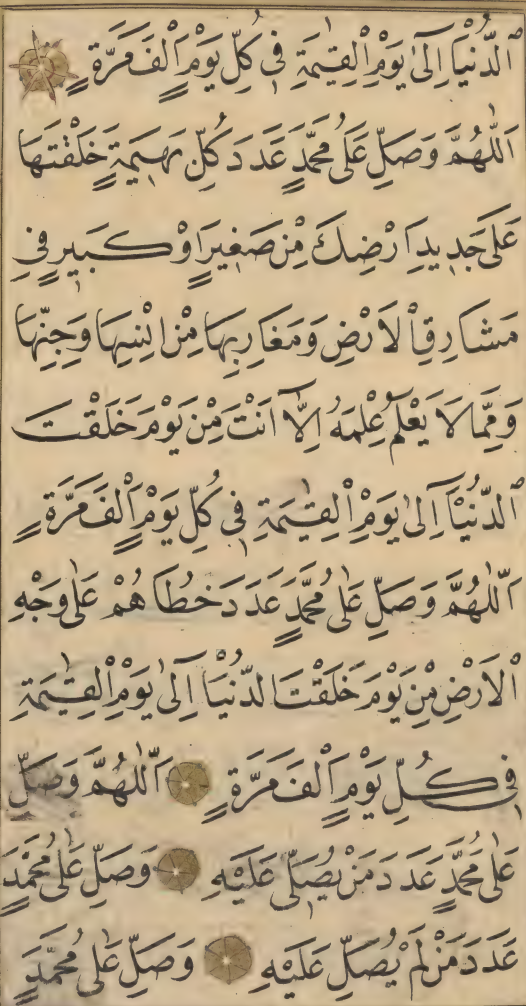 اَلدُّنْيَا اِلٰى يَوْمِ الْقِيٰمَةِ فِى كُلِّ يَوْمٍ اَلْفَ مَرَّةٍ
اَللّٰهُمَّ وَصَلِّ عَلٰى مُحَمَّدٍ عَدَدَ كُلِّ بَهِيمَةٍ خَلَقْتَهَا
عَلٰى جَدِيدِ اَرْضِكَ مِنْ صَغِيرٍ اَوْ كَبِيرٍ فِى
مَشَارِقِ الْاَرْضِ وَمَغَارِبِهَا مِنْ اِنْسِهَا وَجِنِّهَا
وَمِمَّا لَا يَعْلَمُ عِلْمَهُ اِلَّا اَنْتَ مِنْ يَوْمَ خَلَقْتَ
اَلدُّنْيَا اِلٰى يَوْمِ الْقِيٰمَةِ فِى كُلِّ يَوْمٍ اَلْفَ مَرَّةٍ
اَللّٰهُمَّ وَصَلِّ عَلٰى مُحَمَّدٍ عَدَدَ خُطَاهُمْ عَلٰى وَجْهِ
الْاَرْضِ مِنْ يَوْمَ خَلَقْتَ الدُّنْيَا اِلٰى يَوْمِ الْقِيٰمَةِ
فِى كُلِّ يَوْمٍ اَلْفَ مَرَّةٍ اَللّٰهُمَّ وَصَلِّ
عَلٰى مُحَمَّدٍ عَدَدَ مَنْ يُصَلِّى عَلَيْهِ وَصَلِّ عَلٰى مُحَمَّدٍ
عَدَدَ مَنْ لَمْ يُصَلِّ عَلَيْهِ وَصَلِّ عَلٰى مُحَمَّدٍ